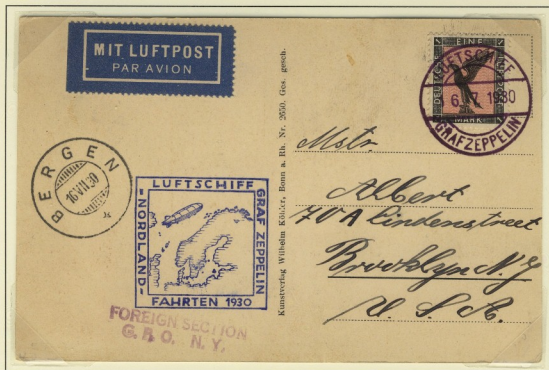 MIT LUFTPOST
PAR AVION
DEUTSCHE
EINE
MARK
LUFTSCHIFF
1930
GRAF ZEPPELIN
BERGEN
16 VII 30
LUFTSCHIFF
GRAF ZEPPELIN
NORDLAND-
FAHRTEN 1930
FOREIGN SECTION
G.P.O. N.Y.
Kunstverlag Wilhelm Köhler, Bonn a. Rh. Nr. 2650. Ges. gesch.
Mstr.
Albert
70A Lindenstreet
Brooklyn N.Y
U.S.A.